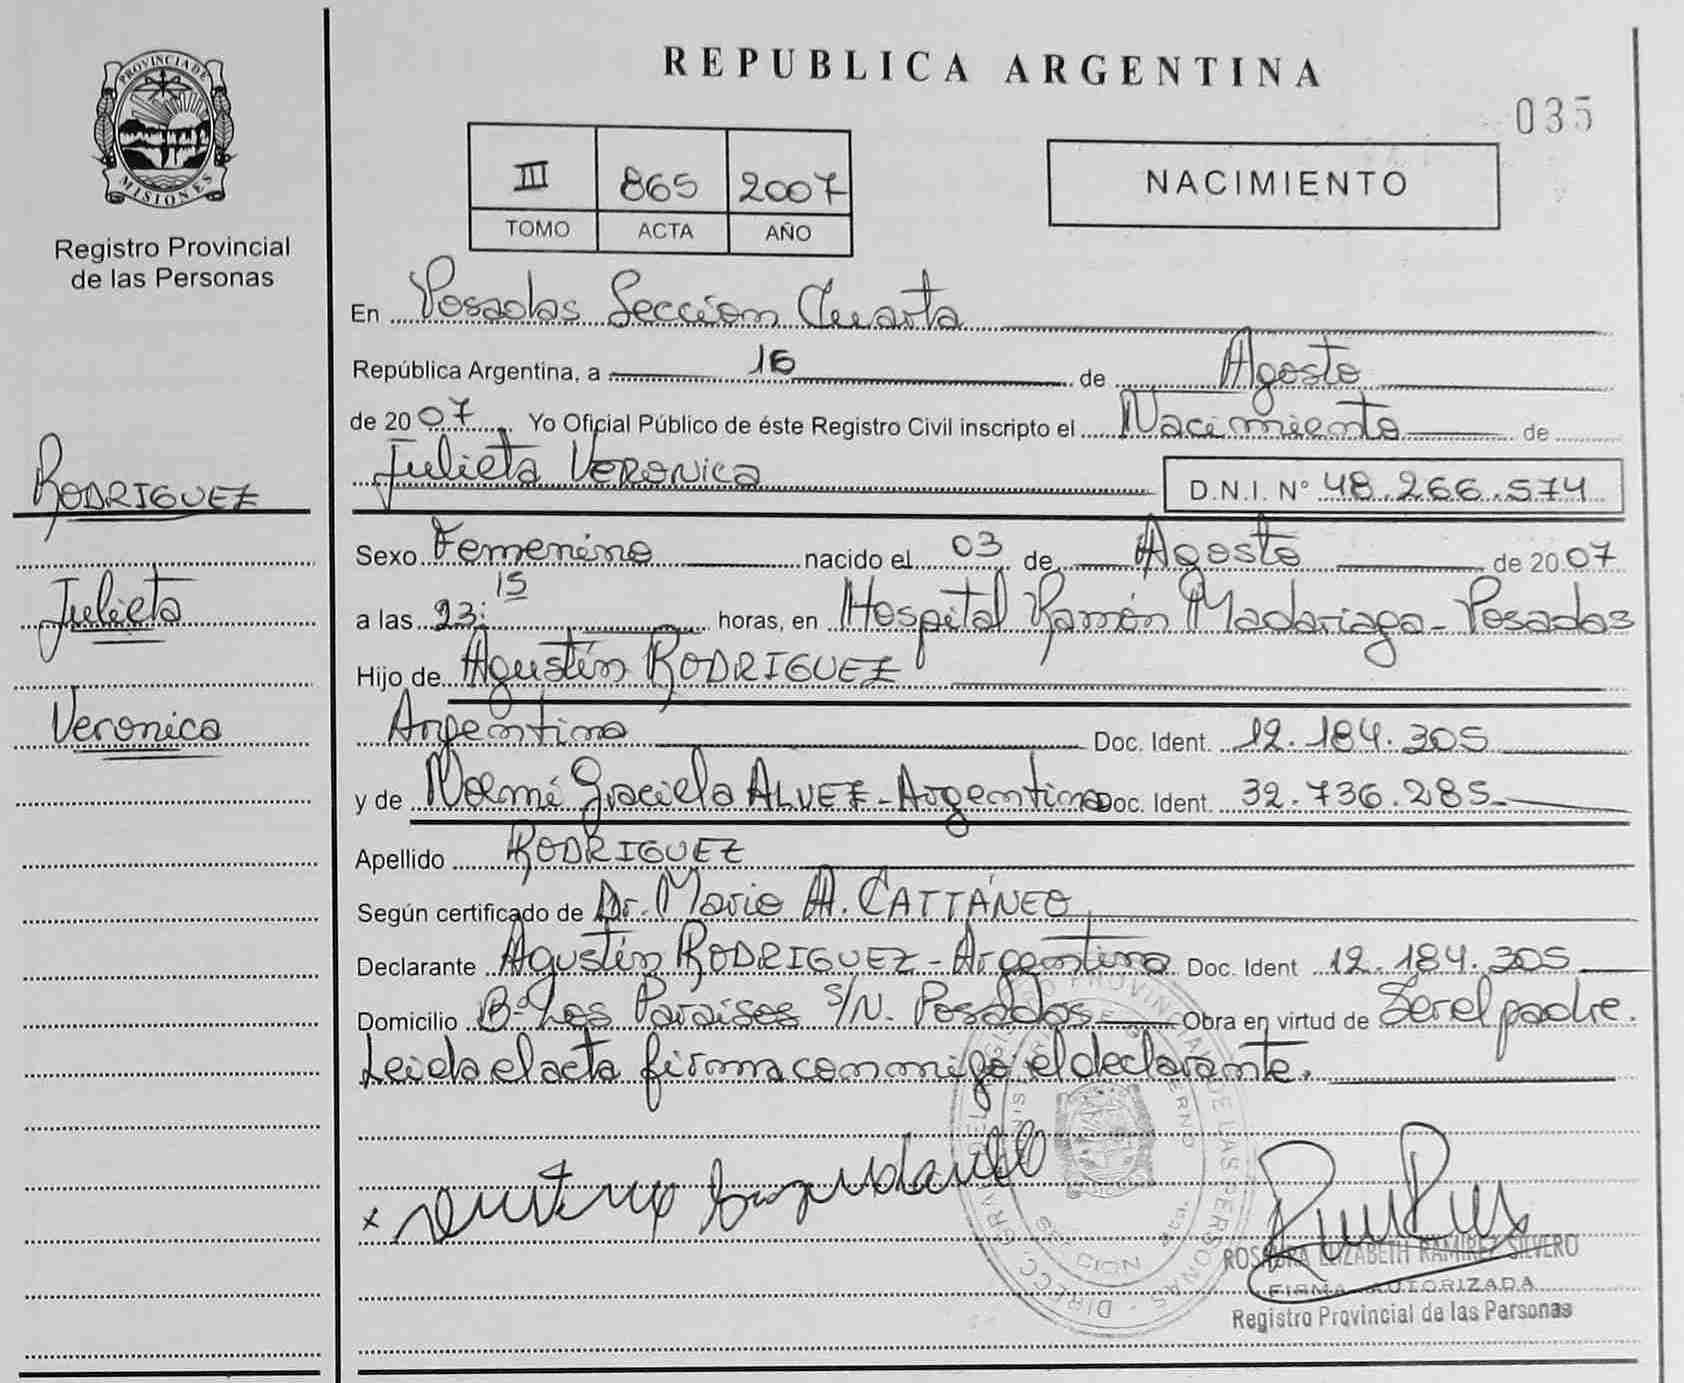 PROVINCIA DE
MISIONES
Registro Provincial
de las Personas
RODRIGUEZ
Julieta
Veronica
REPUBLICA ARGENTINA
035
III 865 2007
TOMO ACTA AÑO
NACIMIENTO
En Posadas Sección Cuarta
República Argentina, a 16 de Agosto
de 2007. Yo Oficial Público de éste Registro Civil inscripto el Nacimiento de
Julieta VERONICA D.N.I. Nº 48.266.574
Sexo Femenino nacido el 03 de Agosto de 2007
a las 23:15 horas, en Hospital Ramón Madariaga - Posadas
Hijo de Agustín RODRIGUEZ
Argentino Doc. Ident. 12.184.305
y de Noemí Graciela ALVEZ - Argentina Doc. Ident. 32.736.285
Apellido RODRIGUEZ
Según certificado de Dr. Mario A. CATTÁNEO
Declarante Agustín RODRIGUEZ - Argentino Doc. Ident 12.184.305
Domicilio Bº Los Paraisos S/N. Posadas Obra en virtud de Ser el padre.
Leida el acta firma conmigo el declarante.
x
ELIZABETH RAMIREZ SILVERO
FIRMA AUTORIZADA
Registro Provincial de las Personas